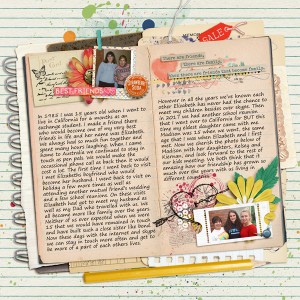 SALE
BEST FRIENDS
There are friends,
there are family,
In 1985 I was 15 years old when I went to
live in California for 6 months as an
exchange student. I made a friend there
who would become one of my very best
friends in life and her name was Elizabeth.
We always had so much fun together and
spent many hours laughing. When I came
home to Australia we continued to stay in
touch as pen pals. We would make the
occasional phone call as back then it would
cost a lot. The first time I went back to visit
I met Elizabeths boyfriend who would
become her husband. I went back to visit on
holiday a few more times as well as
attending another mutual friend's wedding
and a few school reunions. On these visits
Elizabeth had got to meet my husband as
well as my Dad who travelled with us. We
all became more like family over the years.
Neither of us ever expected when we were
15 that we would have remained in touch
and have built such a close sister like bond.
Now these days with the internet and skype
we can stay in touch more often and get to
be more of a part of each others lives.
However in all the years we've known each
other Elizabeth has never had the chance to
meet my children besides over skype. Then
in 2021 I we had another school reunion and
that I went over to California for BUT this
time my eldest daughter came with me.
Madison was 15 when we went, the same
age that I was when Elizabeth and I first
met. Now we cherish the photo above of
Madison with her daughters, Kelsey and
Kiernan, and hope that one day the rest of
my kids will meet too. We both think that it
our kids meet our friendship has grown so
much over the years with us living in
different countries.